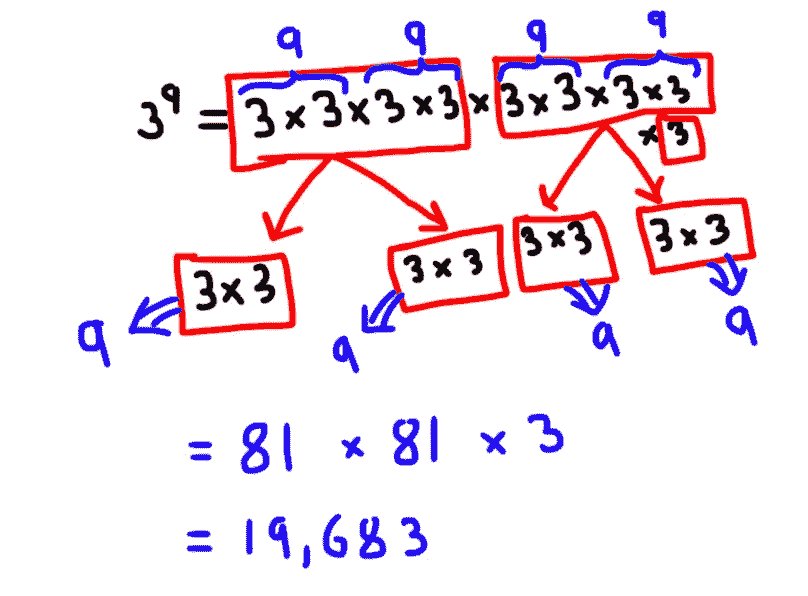 9 9 9 9
3⁹ = 3 × 3 × 3 × 3 × 3 × 3 × 3 × 3
× 3
3 × 3 3 × 3 3 × 3 3 × 3
9 9 9 9
= 81 × 81 × 3
= 19,683